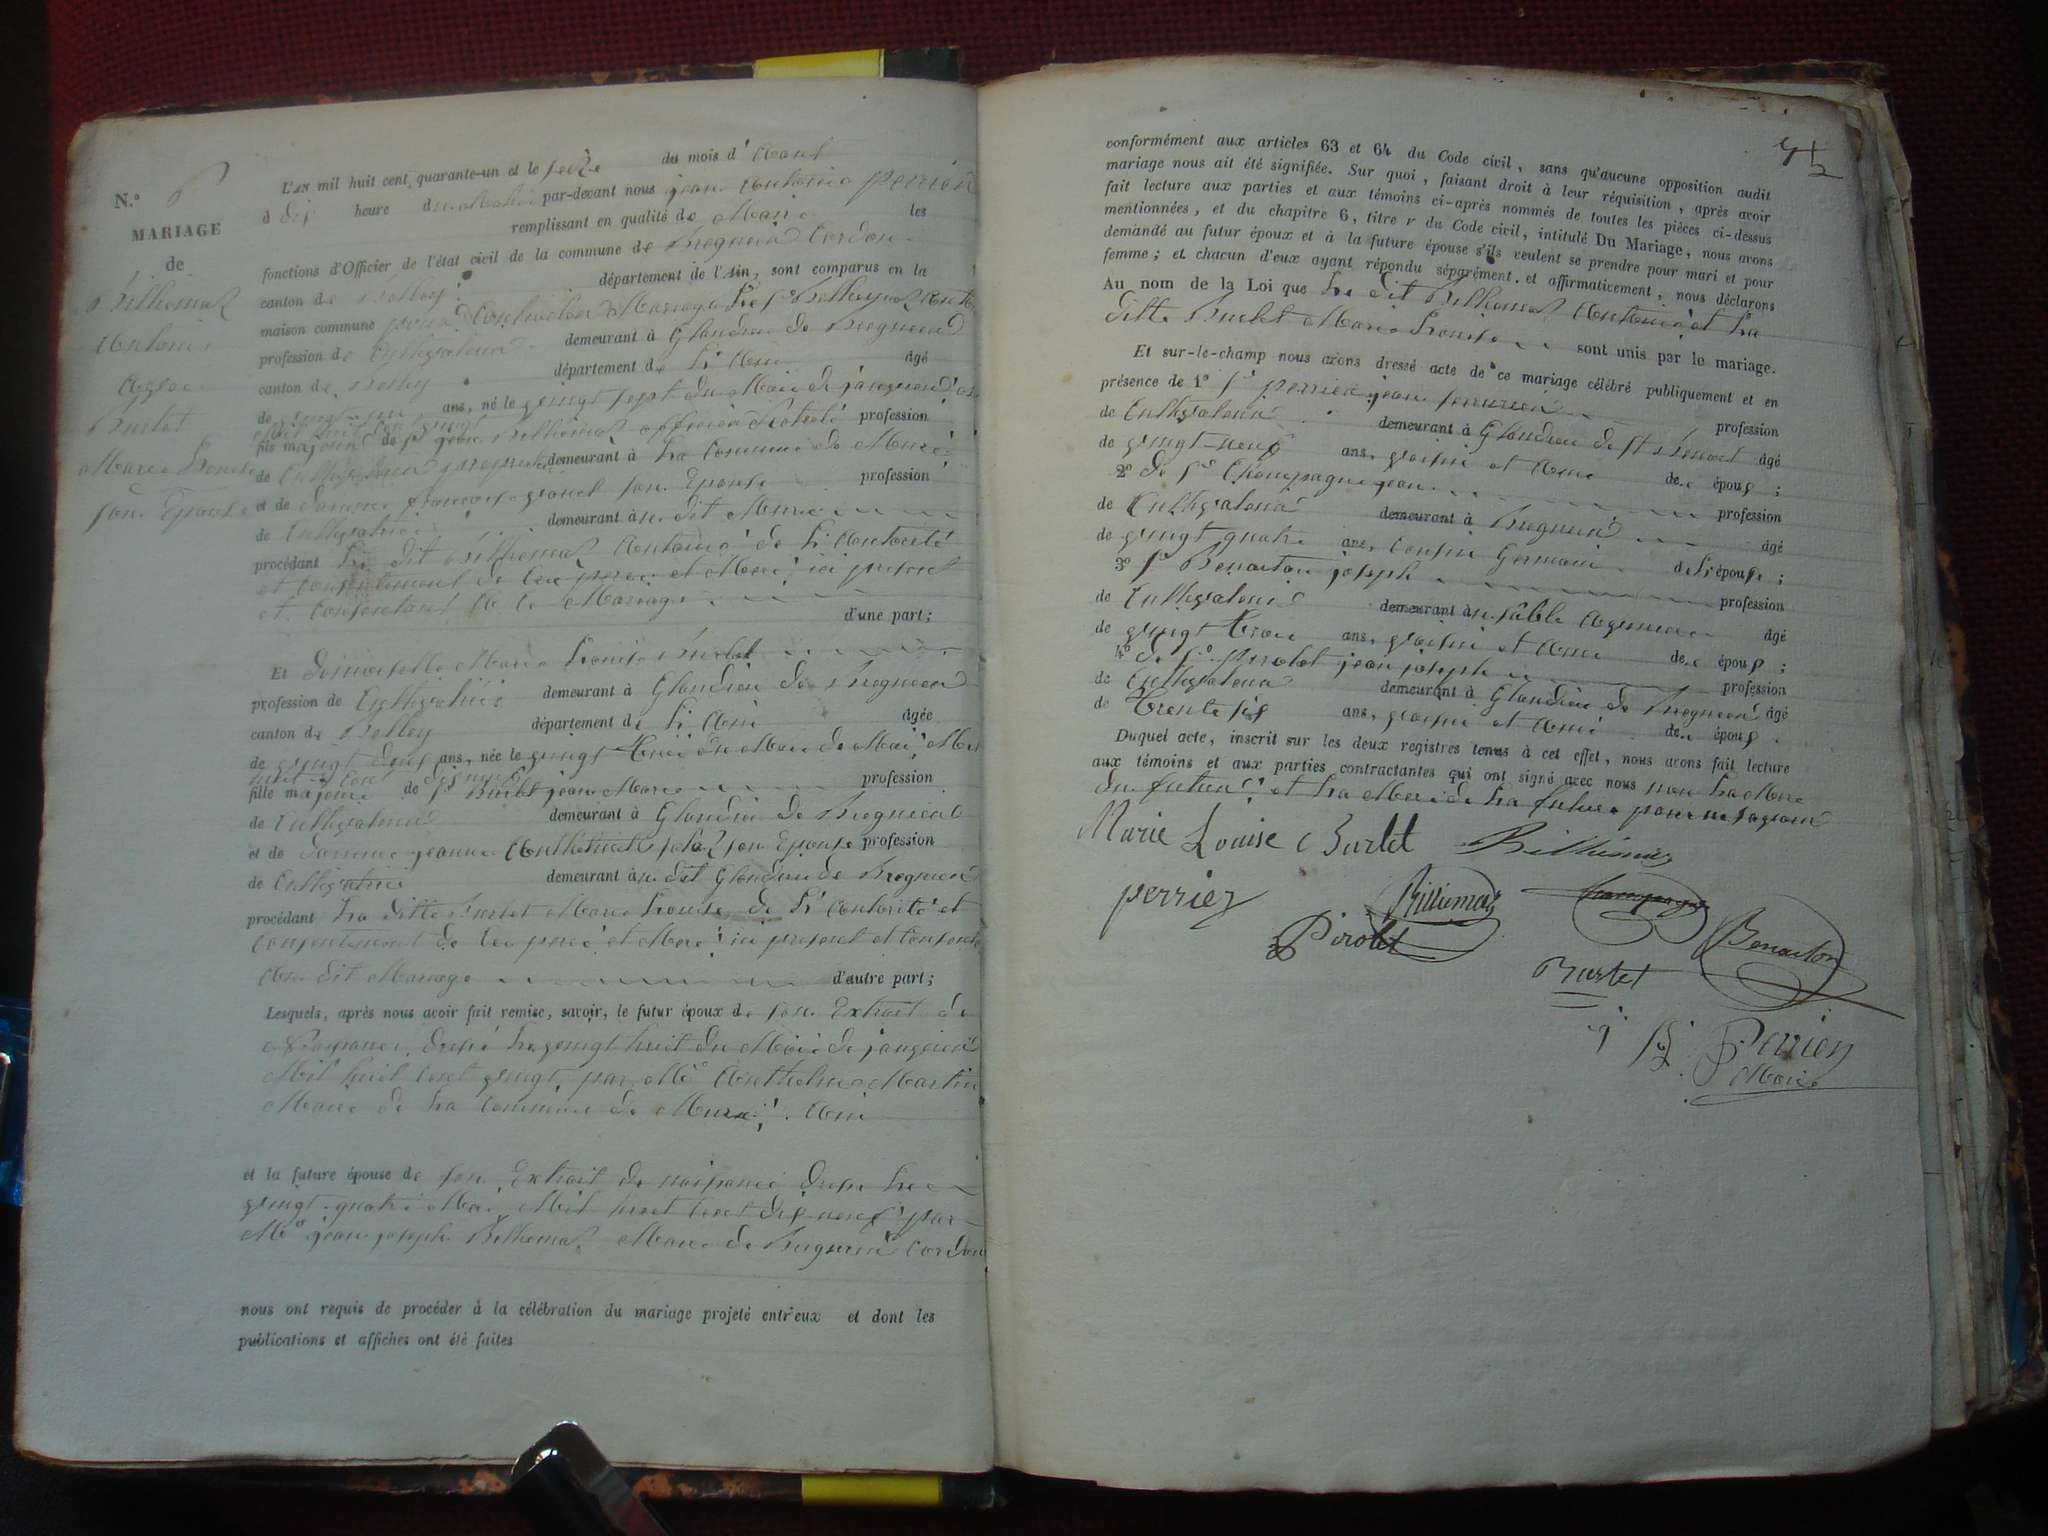 N.° 6
MARIAGE
de
Billiemaz
Antoine
avec
Burlet
Marie Louise
son Epouse
L'an mil huit cent quarante-un et le seize du mois d'Aout
à dix heure du Matin par-devant nous jean Antoine perrier
remplissant en qualité de Maire les
fonctions d'Officier de l'état civil de la commune de Bregnier Cordon
canton de Belley département de l'Ain, sont comparus en la
maison commune pour Contracter Mariage Le Sr
profession de Cultivateur demeurant à Glandieu de Bregnier
canton de Belley département de L'Ain âgé
de vingt-un ans, né le vingt sept du Mois de janvier
mil huit cent vingt
fils majeur de Sr jean Billiemaz officier Retraité profession
de Cultivateur demeurant à La Commune de Murs
et de Damme françoise son Epouse profession
de Cultivatrice demeurant à u dit Murs
procédant Le dit Billiemaz Antoine de L'Autorité
et consentement de Ces pere et Mere ici present
et Consentant Mariage
d'une part;
Et Demoiselle Marie Louise Burlet
profession de Cultivatrice demeurant à Glandieu de Bregnier
canton de Belley département de L'Ain âgée
de vingt deux ans, née le vingt trois du Mois de Mai Mil
huit Cent dix neuf
fille majeure de Sr Burlet jean Marie profession
de Cultivateur demeurant à Glandieu de Bregnier
et de Damme jeanne son Epouse profession
de Cultivatrice demeurant à u dit Glandieu de Bregnier
procédant La ditte Burlet Marie Louise de L'Autorité et
consentement de Ces pere et Mere ici present et Consentant
Au dit Mariage d'autre part;
Lesquels, après nous avoir fait remise, savoir, le futur époux de son Extrait de
Naissance dressé Le vingt huit du Mois de janvier
Mil huit Cent vingt par Mr Anthelme Martin
Maire de La Commune de Murs Ain
et la future épouse de son Extrait de naissance dressé Le
vingt quatre Mai Mil huit Cent dix neuf par
Mr jean joseph Billiemaz Maire de Bregnier Cordon
nous ont requis de procéder à la célébration du mariage projeté entr'eux et dont les
publications et affiches ont été faites
conformément aux articles 63 et 64 du Code civil, sans qu'aucune opposition audit
mariage nous ait été signifiée. Sur quoi, faisant droit à leur réquisition, après avoir
fait lecture aux parties et aux témoins ci-après nommés de toutes les pièces ci-dessus
mentionnées, et du chapitre 6, titre v du Code civil, intitulé Du Mariage, nous avons
demandé au futur époux et à la future épouse s'ils veulent se prendre pour mari et pour
femme; et chacun d'eux ayant répondu séparément et affirmativement, nous déclarons
Au nom de la Loi que Le dit Billiemaz Antoine et La
ditte Burlet Marie Louise sont unis par le mariage.
Et sur-le-champ nous avons dressé acte de ce mariage célébré publiquement et en
présence de 1° Sr perrier jean profession
de Cultivateur demeurant à Glandieu de St Benoit âgé
de vingt-neuf ans, voisin et Ami de l époux;
2° de Sr Champagne jean profession
de Cultivateur demeurant à Bregnier âgé
de vingt quatre ans, Cousin Germain de L'épouse;
3° Sr Benaiton joseph profession
de Cultivateur demeurant à âgé
de vingt trois ans, voisin et Ami de l époux;
4° de Sr Pirolet jean joseph profession
de Cultivateur demeurant à Glandieu de Bregnier âgé
de Trente six ans, voisin et Ami de l époux.
Duquel acte, inscrit sur les deux registres tenus à cet effet, nous avons fait lecture
aux témoins et aux parties contractantes qui ont signé avec nous non La Mere
du futur et La Mere de La future pour ne savoir
Marie Louise Burlet Billiemaz
perrier Billiemaz Champagne
Pirolet Benaiton
Burlet
Perrier
Maire